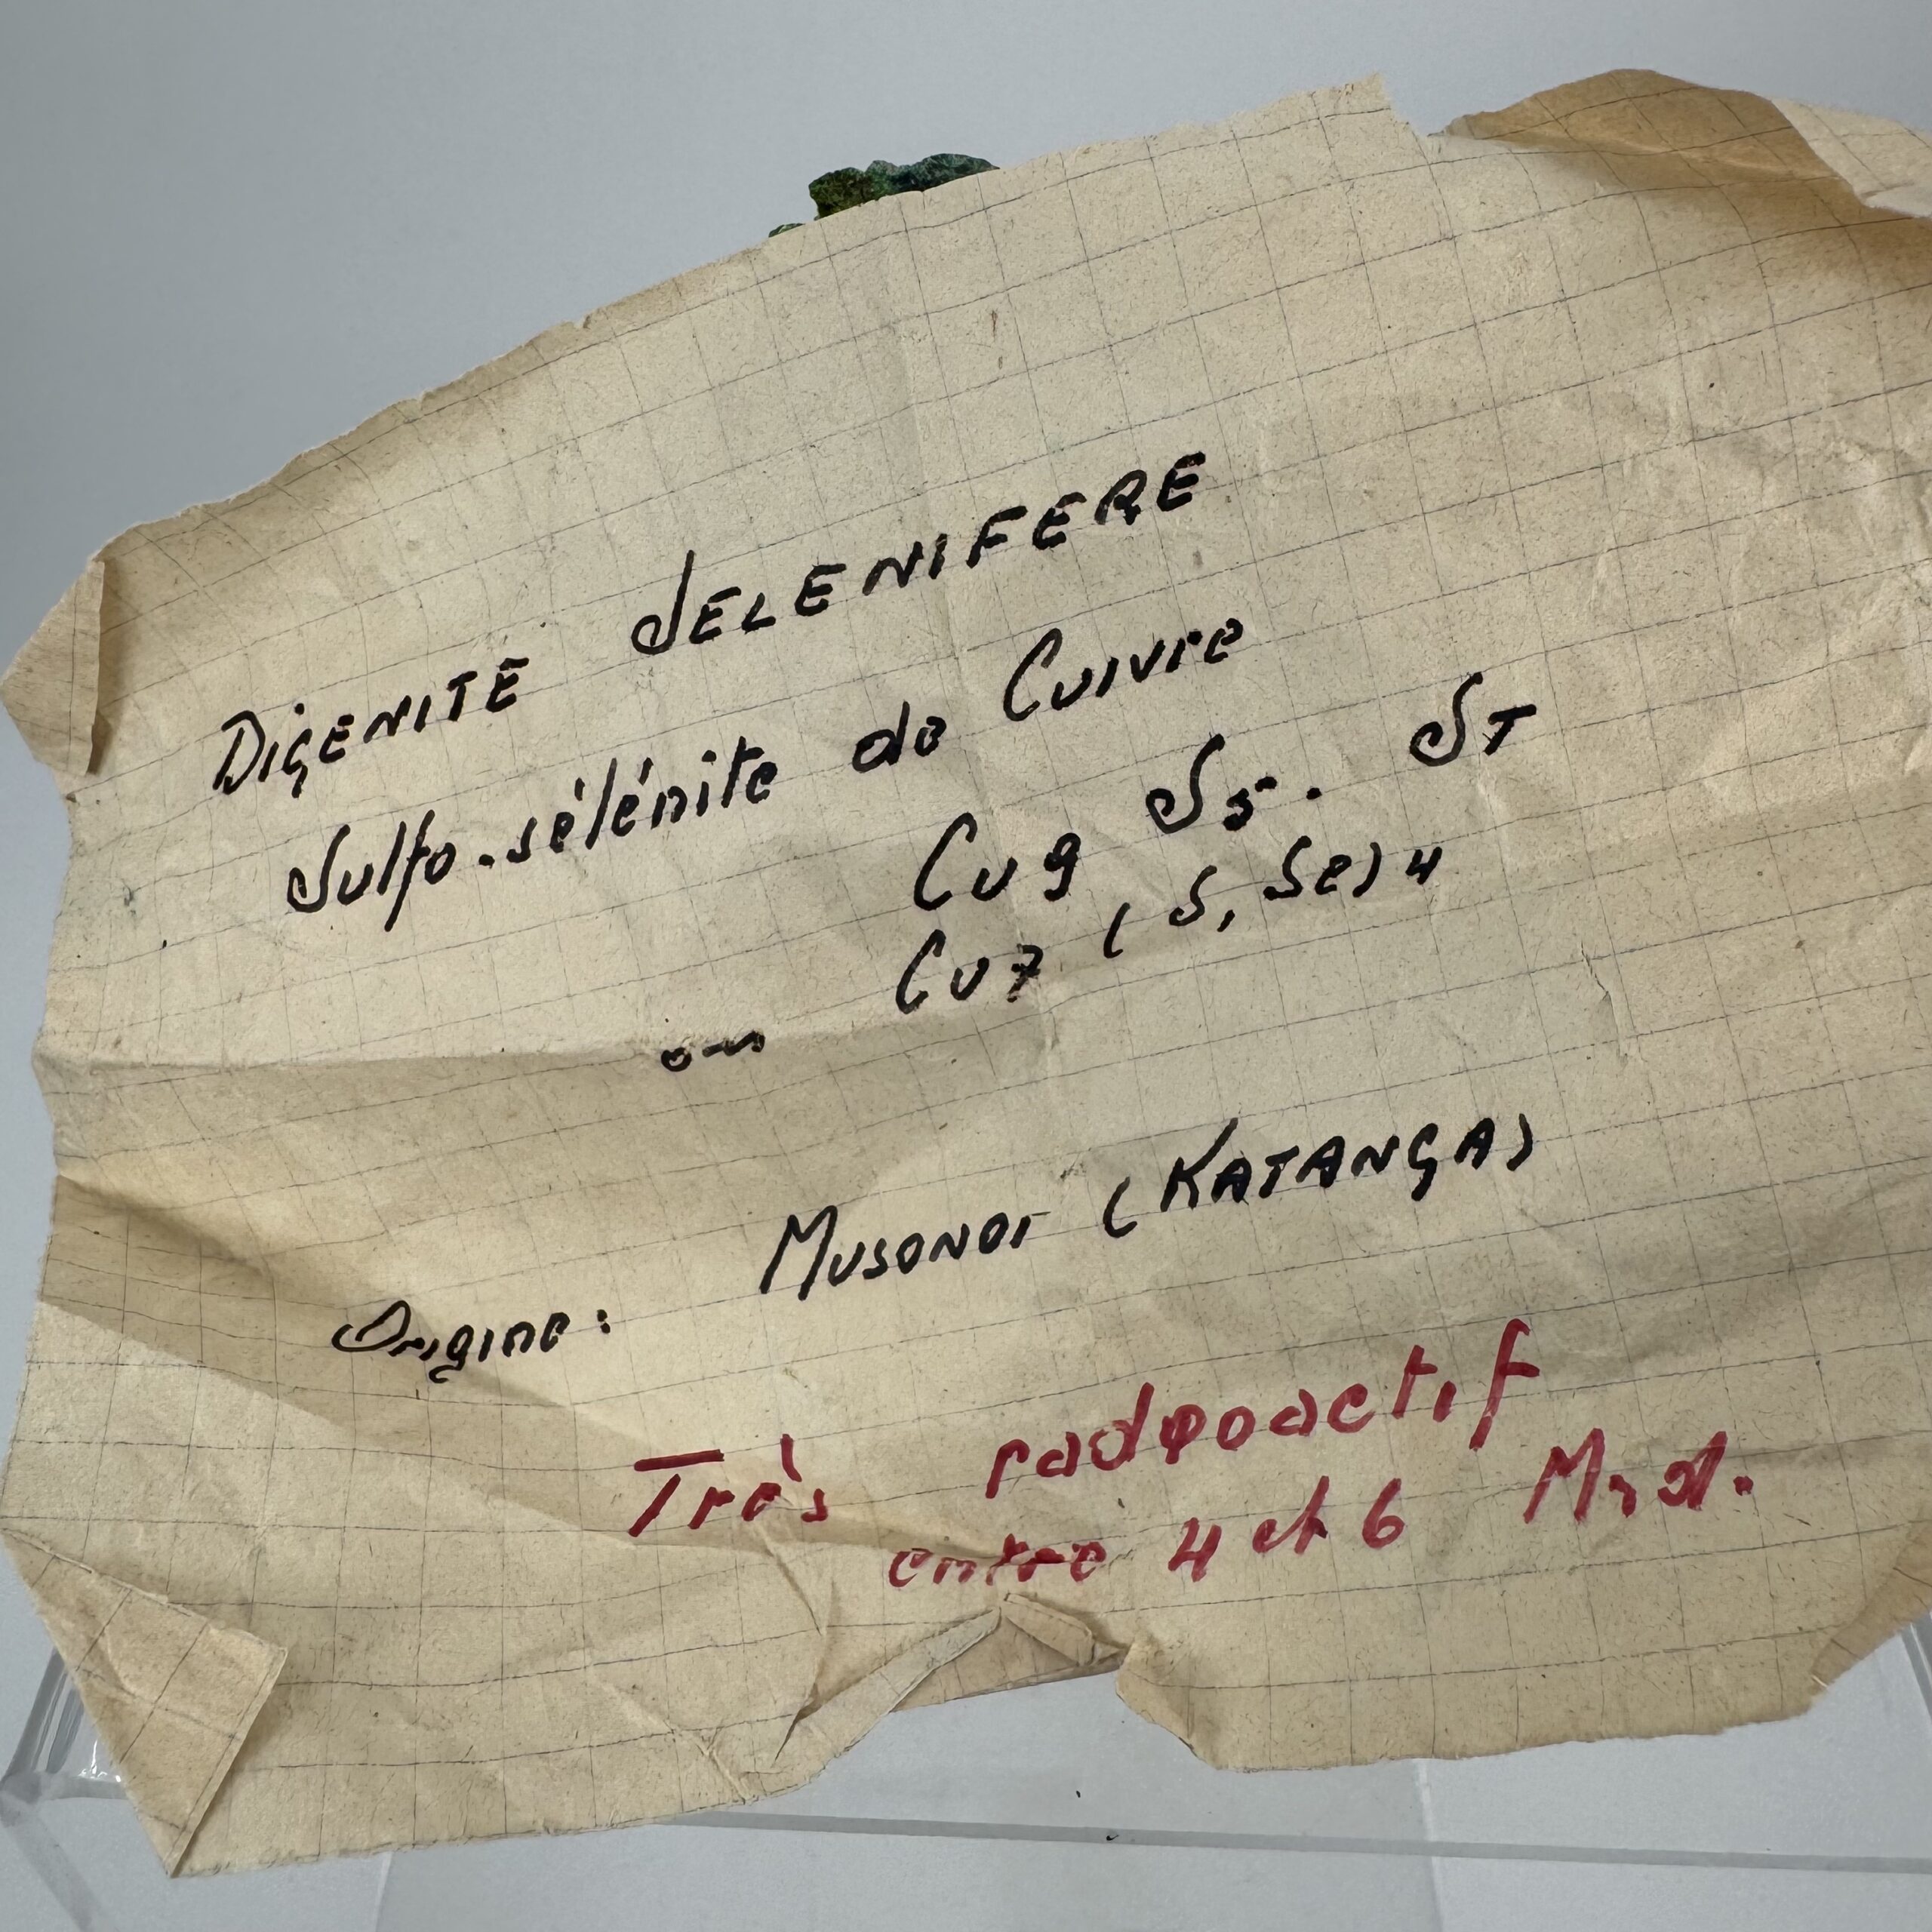 DIGENITE SELENIFERE
Sulfo-sélénite de Cuivre
Cu9 S5. ST
ou Cu7 (S, Se)4
Origine: MUSONOI (KATANGA)
Très radioactif
entre 4 et 6